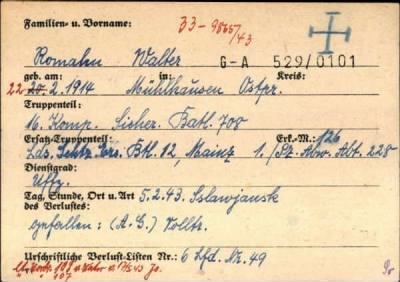 Familien- u. Vorname: 33-9865/43
Romahn Walter G-A 529/0101
geb. am: in: Kreis:
22. 20. 2. 1914 Mühlhausen Ostpr.
Truppenteil:
16. Komp. Sicher. Batl. 708
Ersatz-Truppenteil: Erk.-M. 126
Lds. Schtz. Ers. Btl. 12, Mainz 1./Pz. Abw. Abt. 228
Dienstgrad:
Uffz.
Tag, Stunde, Ort u. Art 5.2.43. Sslawjansk
des Verlustes:
gefallen: (A.G.)
Urschriftliche Verlust-Listen Nr.: 6 Lfd. Nr. 49